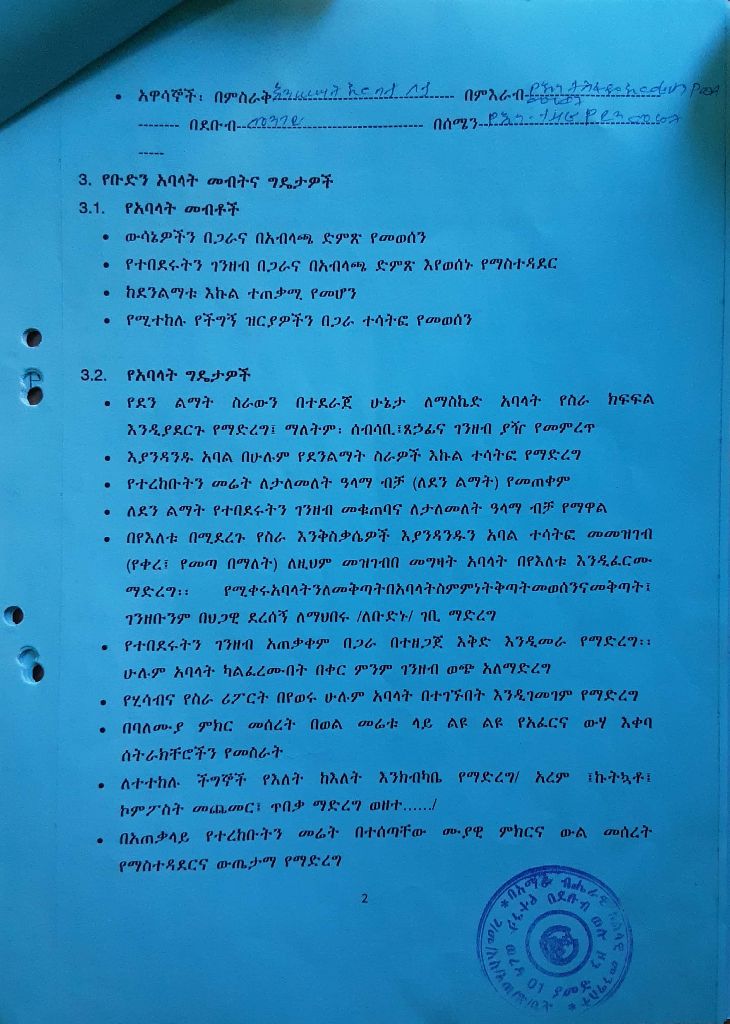 • አዋሳኞች፡ በምስራቅ በምእራብ
በደቡብ መንገድ በሰሜን
3. የቡድን አባላት መብትና ግዴታዎች
3.1. የአባላት መብቶች
• ውሳኔዎችን በጋራና በአብላጫ ድምጽ የመወሰን
• የተበደሩትን ገንዘብ በጋራና በአብላጫ ድምጽ እየወሰኑ የማስተዳደር
• ከደንልማቱ እኩል ተጠቃሚ የመሆን
• የሚተከሉ የችግኝ ዝርያዎችን በጋራ ተሳትፎ የመወሰን
3.2. የአባላት ግዴታዎች
• የደን ልማት ስራውን በተደራጀ ሁኔታ ለማስኬድ አባላት የስራ ክፍፍል
እንዲያደርጉ የማድረግ፤ ማለትም፡ ሰብሳቢ፤ጸኃፊና ገንዘብ ያዥ የመምረጥ
• እያንዳንዱ አባል በሁሉም የደንልማት ስራዎች እኩል ተሳትፎ የማድረግ
• የተረከቡትን መሬት ለታለመለት ዓላማ ብቻ (ለደን ልማት) የመጠቀም
• ለደን ልማት የተበደሩትን ገንዘብ መቁጠባና ለታለመለት ዓላማ ብቻ የማዋል
• በየእለቱ በሚደረጉ የስራ እንቅስቃሴዎች እያንዳንዱን አባል ተሳትፎ መመዝገብ
(የቀረ፤ የመጣ በማለት) ለዚህም መዝገብበ መግዛት አባላት በየእለቱ እንዲፈርሙ
ማድረግ፡፡ የሚቀሩአባላትንለመቅጣትበአባላትስምምነትቅጣትመወሰንናመቅጣት፤
ገንዘቡንም በህጋዊ ደረሰኝ ለማህበሩ /ለቡድኑ/ ገቢ ማድረግ
• የተበደሩትን ገንዘብ አጠቃቀም በጋራ በተዘጋጀ እቅድ እንዲመራ የማድረግ፡፡
ሁሉም አባላት ካልፈረሙበት በቀር ምንም ገንዘብ ወጭ አለማድረግ
• የሂሳብና የስራ ሪፖርት በየወሩ ሁሉም አባላት በተገኙበት እንዲገመገም የማድረግ
• በባለሙያ ምክር መሰረት በወል መሬቱ ላይ ልዩ ልዩ የአፈርና ውሃ እቀባ
ሰትራክቸሮችን የመስራት
• ለተተከሉ ችግኞች የእለት ከእለት እንክብካቤ የማድረግ/ አረም ፤ኩትኳቶ፤
ኮምፖስት መጨመር፤ ጥበቃ ማድረግ ወዘተ……/
• በአጠቃላይ የተረከቡትን መሬት በተሰጣቸው ሙያዊ ምክርና ውል መሰረት
የማስተዳደርና ውጤታማ የማድረግ
2